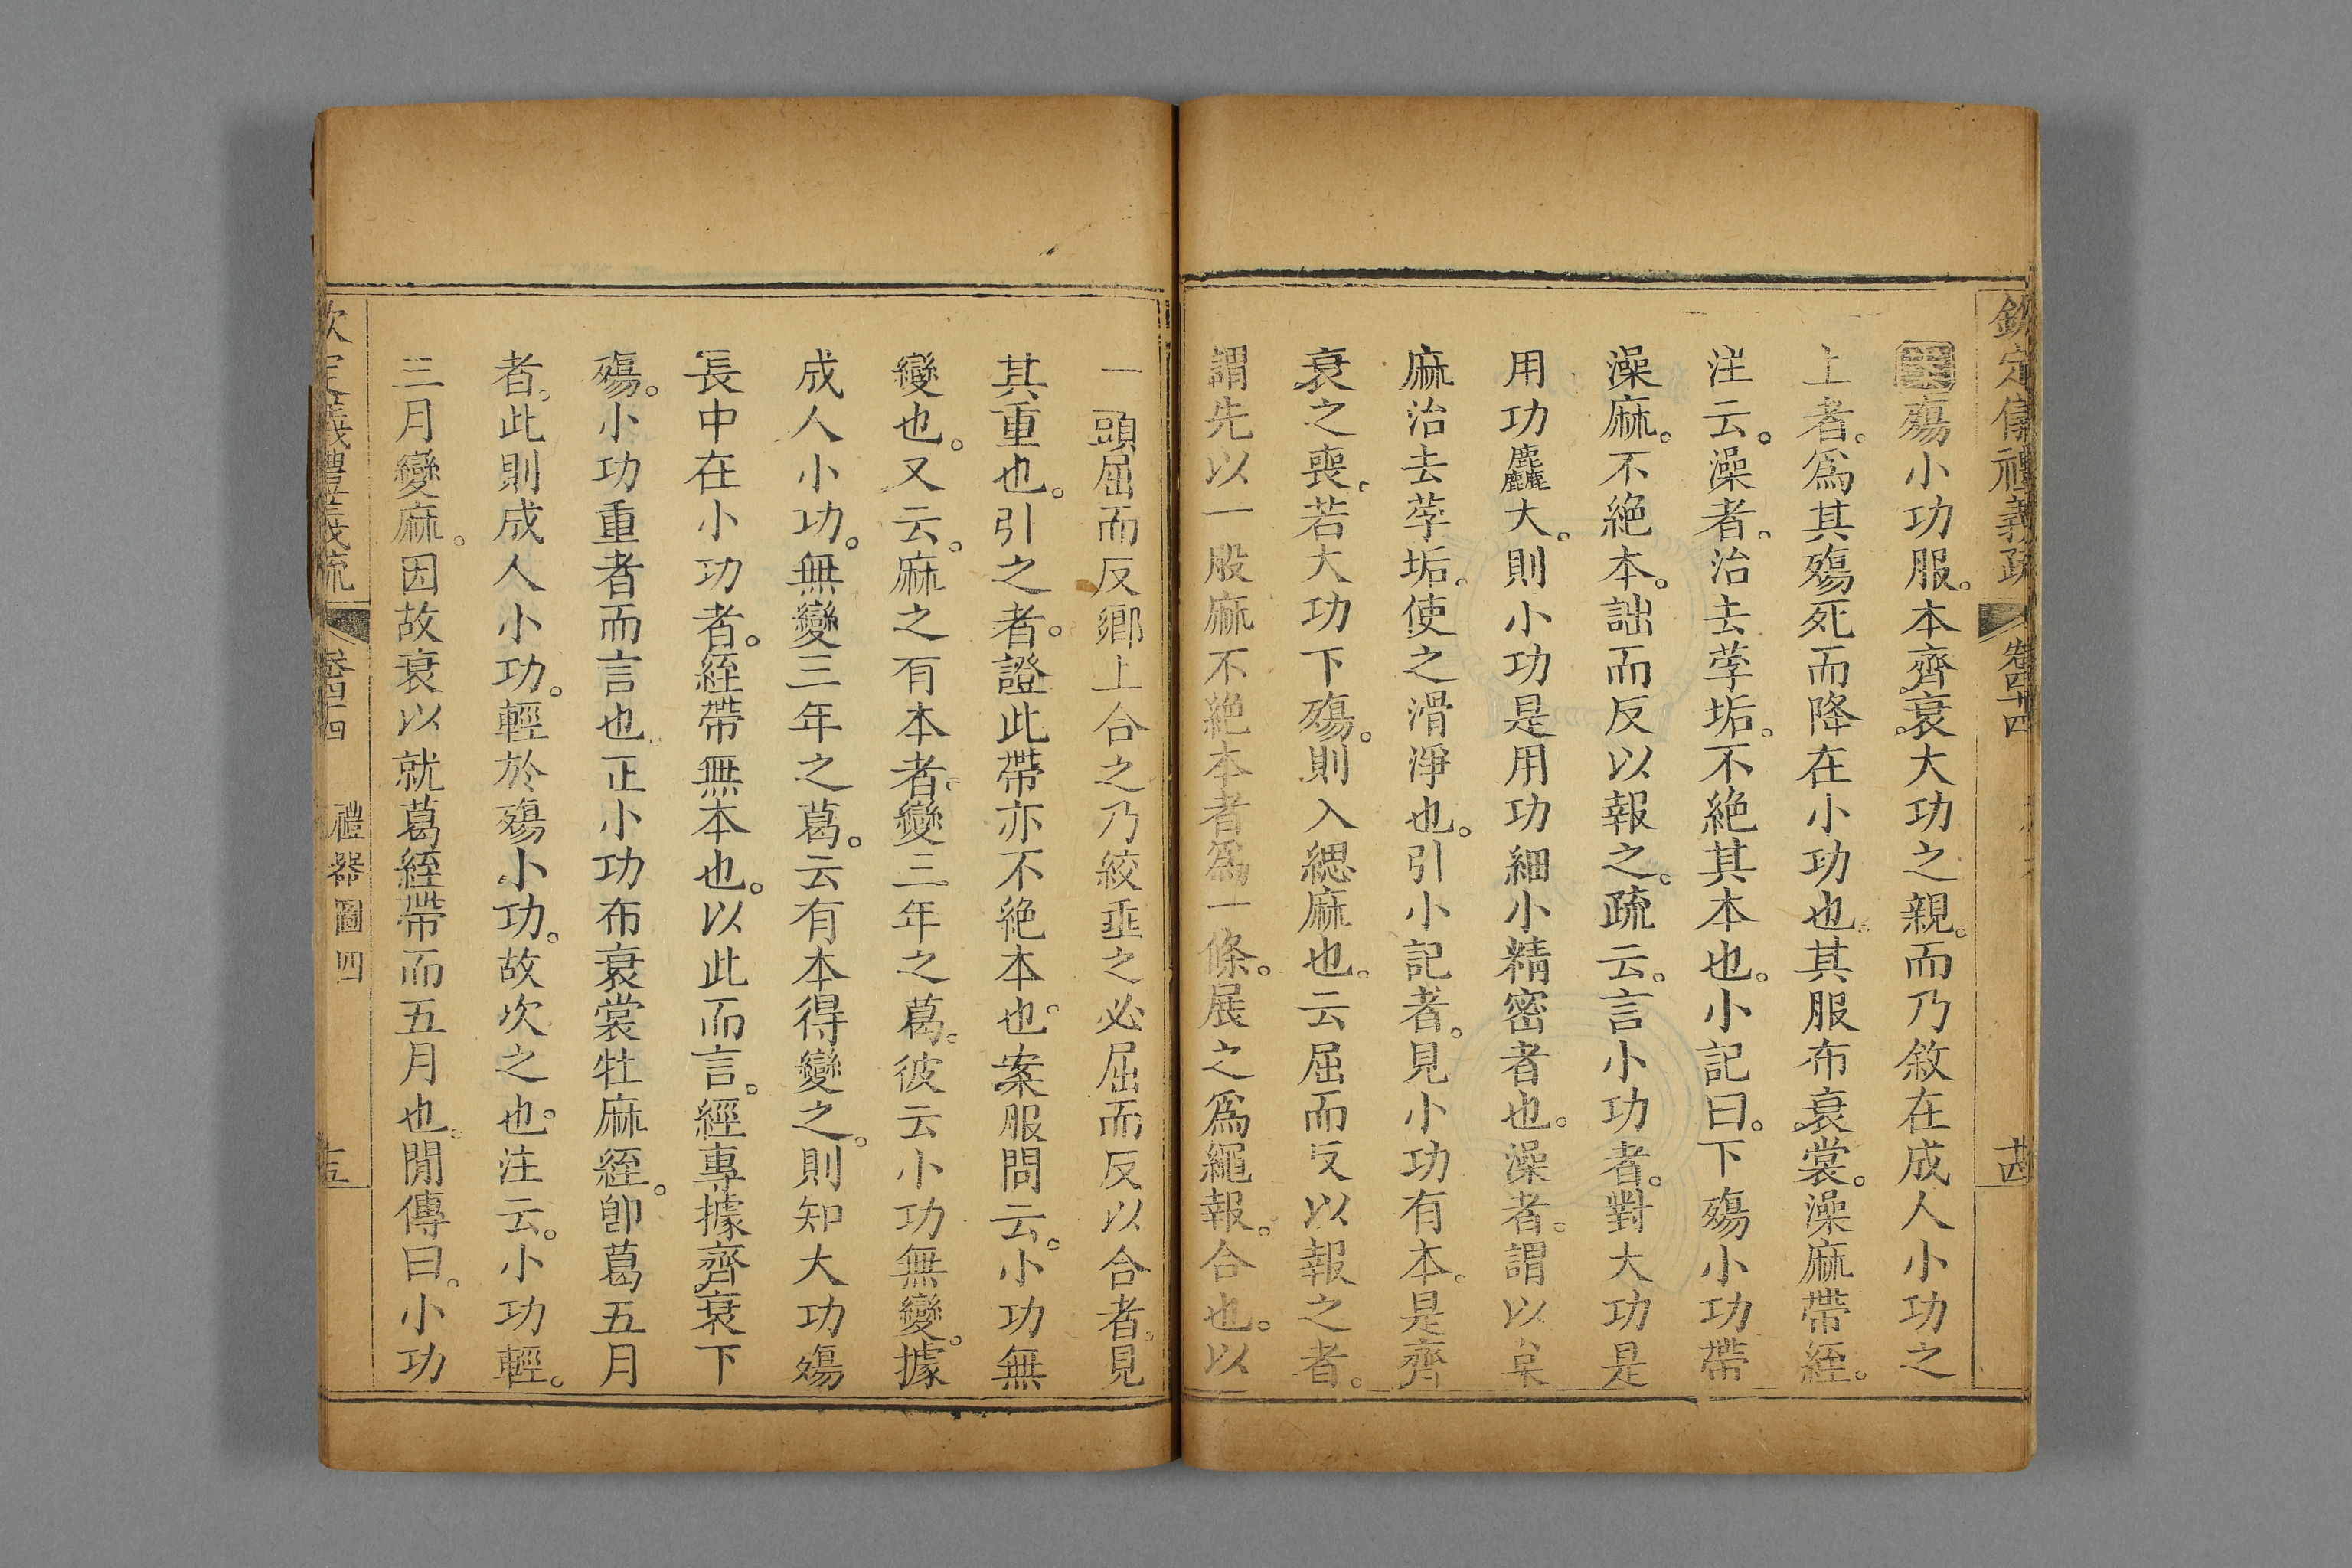 欽定儀禮義疏 卷四十四 十四
案殤小功服。本齊衰。大功之親。而乃敘在成人小功之
上者。爲其殤死而降在小功也。其服布衰裳。澡麻帶絰。
注云。澡者。治去莩垢。不絶其本也。小記曰。下殤小功帶
澡麻。不絶本。詘而反以報之。疏云。言小功者。對大功是
用功麤大。則小功是用功細小精密者也。澡者。謂以枲
麻治去莩垢。使之滑淨也。引小記者。見小功有本。是齊
衰之喪。若大功下殤。則入緦麻也。云屈而反以報之者。
謂先以一股麻不絶本者爲一條。展之爲繩報。合也。以
一頭屈而反鄉上合之乃絞垂之必屈而反以合者。見
其重也。引之者。證此帶亦不絶本也。案服問云。小功無
變也。又云。麻之有本者。變三年之葛。彼云小功無變。據
成人小功。無變三年之葛。云有本得變之。則知大功殤
長中在小功者。絰帶無本也。以此而言。經專據齊衰下
殤。小功重者而言也。正小功布衰裳牡麻絰。卽葛五月
者。此則成人小功。輕於殤小功。故次之也。注云。小功輕。
三月變麻。因故衰以就葛絰帶而五月也。閒傳曰。小功
欽定儀禮義疏 卷四十四 禮器圖四 十五